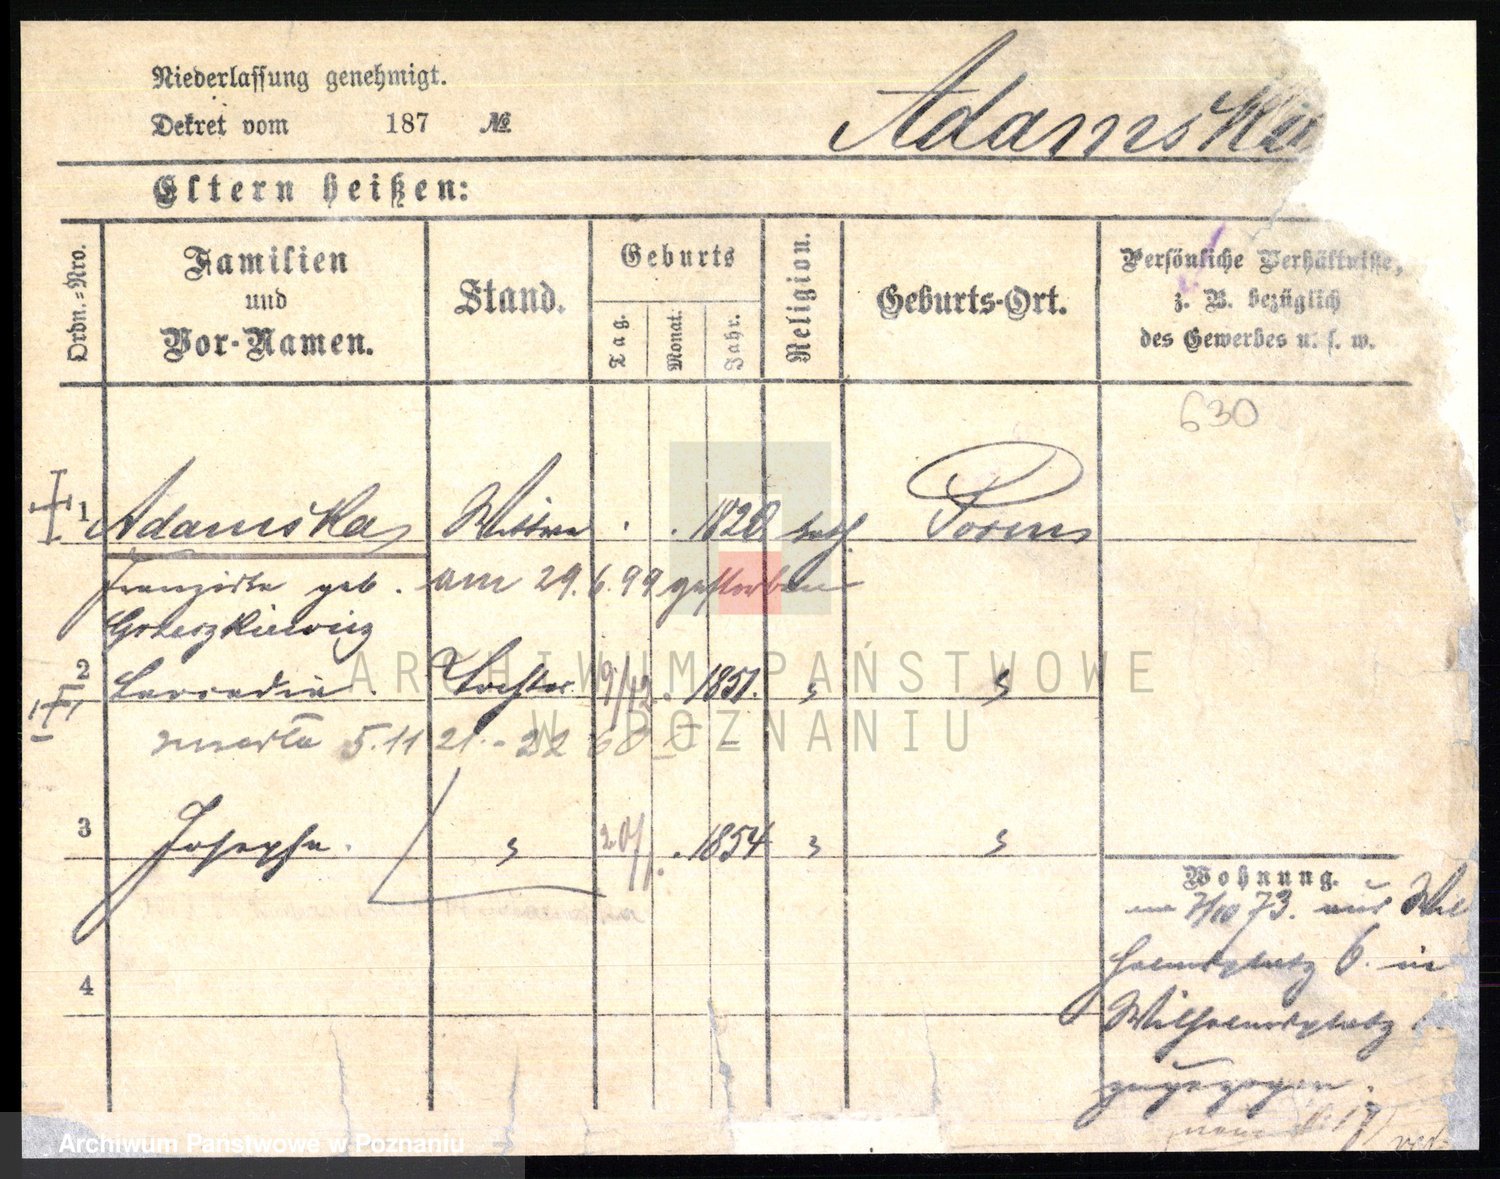 Niederlassung genehmigt.
Dekret vom 187 №
Adamska
Eltern heißen:
Ordn.=Nro.
Familien
und
Vor-Namen.
Stand.
Geburts
Tag.
Monat.
Jahr.
Religion.
Geburts-Ort.
Persönliche Verhältnisse,
z. B. bezüglich
des Gewerbes u. s. w.
630
1 Adamska Wittwe 1828 kath. Posen
Franziska geb. am 29.6.99 gestorben
2 Leocadia. Tochter 9/12. 1851. " "
zmarła 5.11 21.
3 Josepha. " 20/1. 1854 " "
Wohnung.
7/10 73. aus Wil
helmsplatz 6. in
4
Wilhelmsplatz
zugezogen.
ARCHIWUM PAŃSTWOWE
W POZNANIU
Archiwum Państwowe w Poznaniu